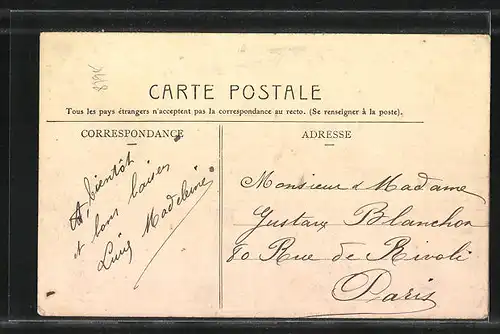 CARTE POSTALE
Tous les pays étrangers n'acceptent pas la correspondance au recto. (Se renseigner à la poste).
CORRESPONDANCE
A bientôt
et bons baisers
Madeleine
ADRESSE
Monsieur & Madame
Gustave Blanchon
80 Rue de Rivoli
Paris